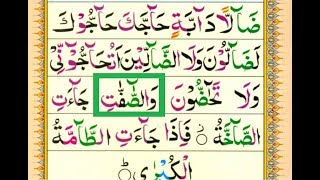 ضَآلًّا دَآبَّةٍ حَآجَّكَ حَآجُّوْكَ
لَضَآلُّوْنَ وَلَا الضَّآلِّيْنَ اَتُحَآجُّوْٓنِّيْ
وَلَا تَحٰٓضُّوْنَ وَالصّٰٓفّٰتِ جَآءَتِ
الصَّآخَّةُ فَاِذَا جَآءَتِ الطَّآمَّةُ
الْكُبْرٰى